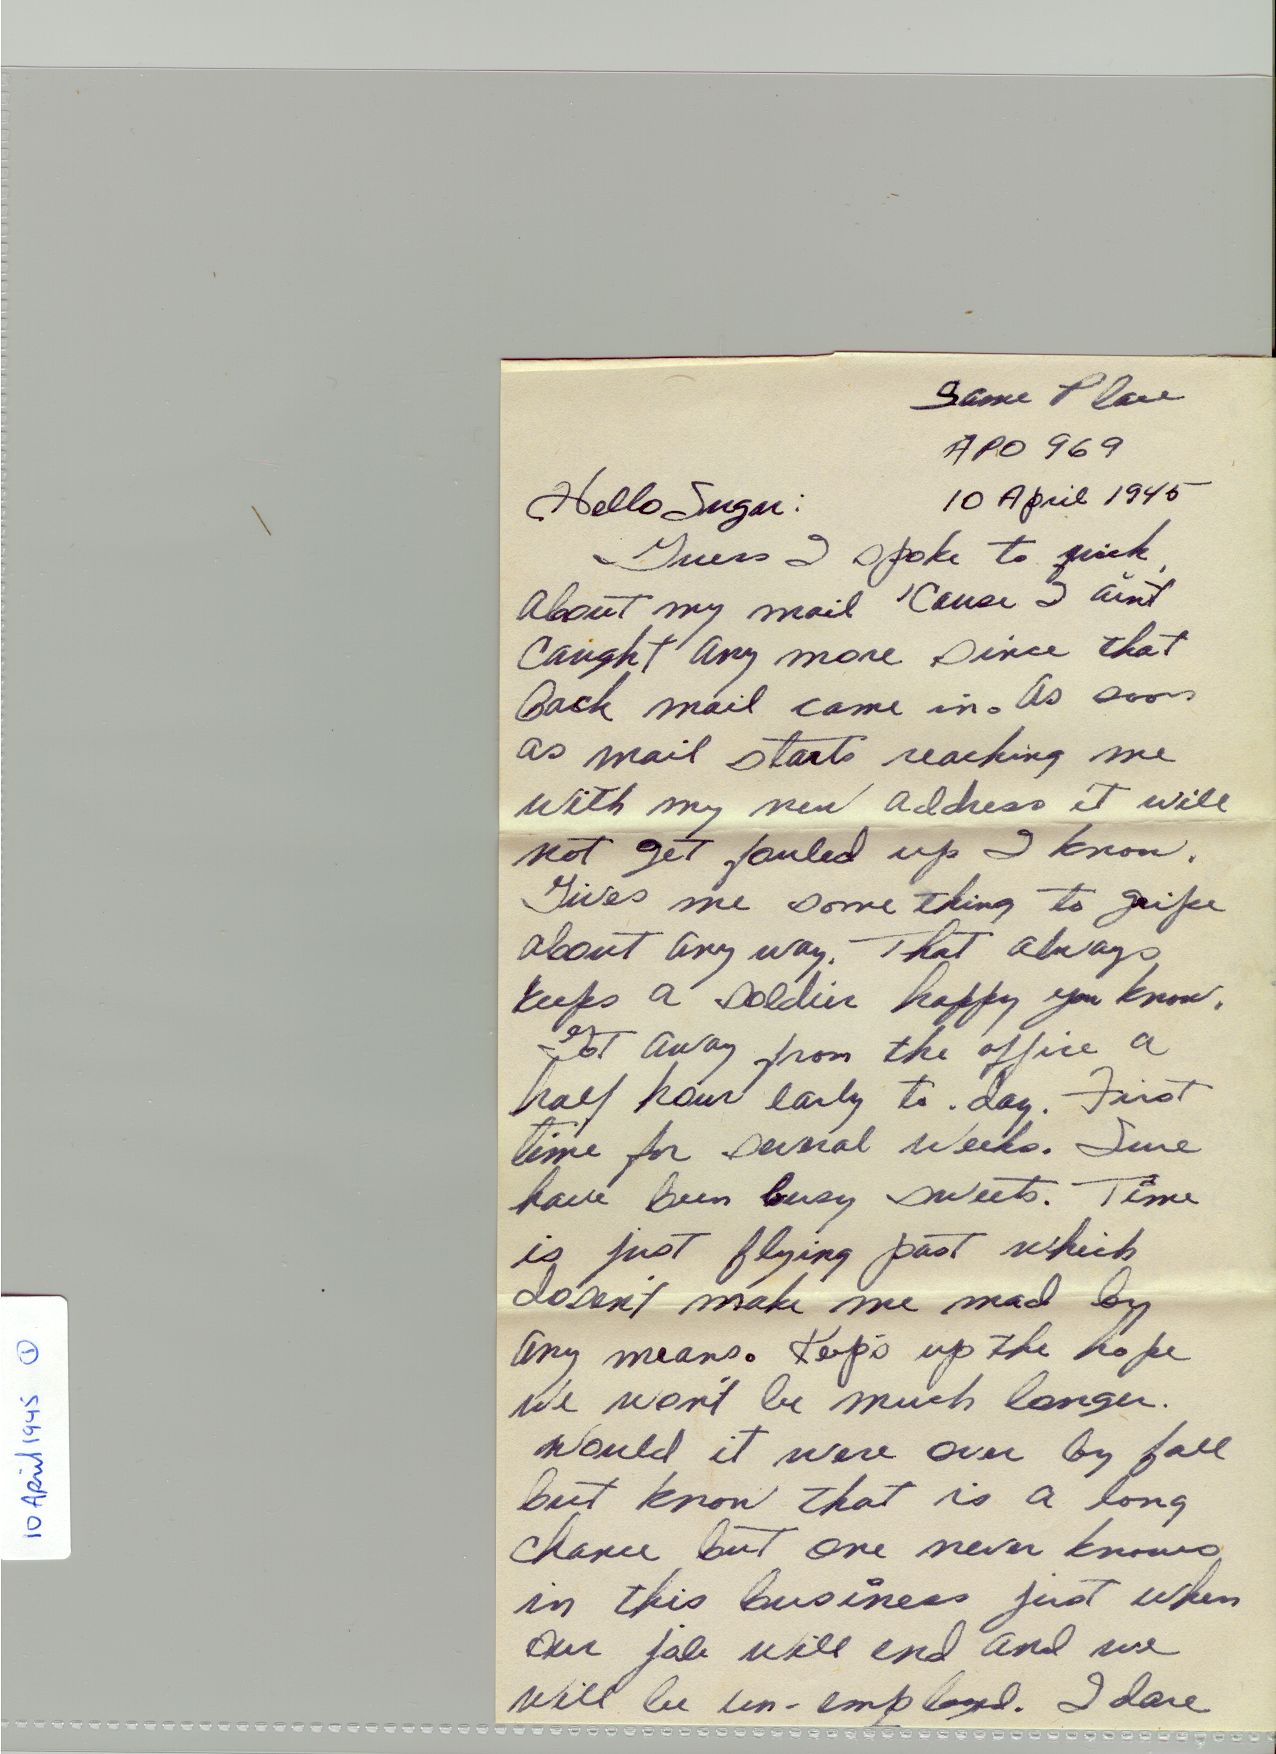 Same Place
APO 969
10 April 1945
Hello Sugar:
Guess I spoke to quick
about my mail 'cause I ain't
caught any more since that
back mail came in. As soon
as mail starts reaching me
with my new address it will
not get fouled up I know.
Gives me some thing to gripe
about any way. That always
keeps a soldier happy you know.
Got away from the office a
half hour early to-day. First
time for several weeks. Sure
have been busy sweets. Time
is just flying past which
dosen't make me mad by
any means. Keeps up the hope
we won't be much longer.
Would it were over by fall
but know that is a long
chance but one never knows
in this business just when
our job will end and we
will be un-employed. I dare
10 April 1945 ①